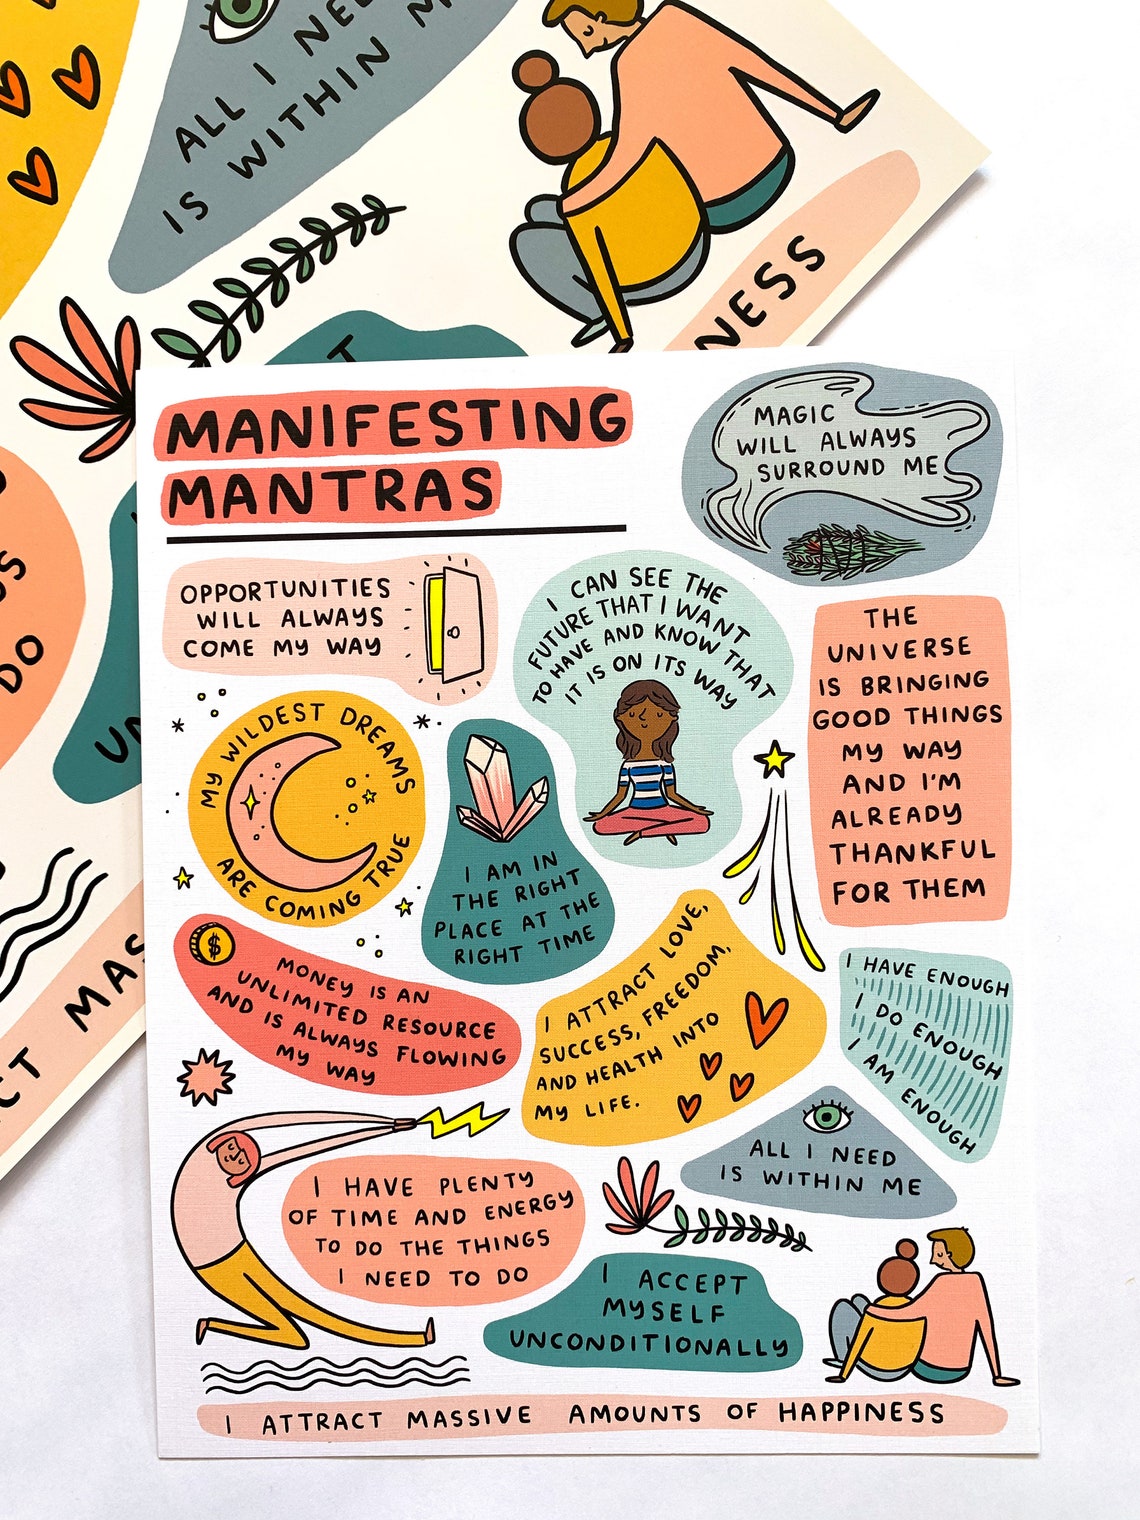 ALL I NEED
IS WITHIN M
NESS
DO
MAS
CT
MANIFESTING
MANTRAS
MAGIC
WILL ALWAYS
SURROUND ME
OPPORTUNITIES
WILL ALWAYS
COME MY WAY
I CAN SEE THE
FUTURE THAT I WANT
TO HAVE AND KNOW THAT
IT IS ON ITS WAY
THE
UNIVERSE
IS BRINGING
GOOD THINGS
MY WAY
AND I'M
ALREADY
THANKFUL
FOR THEM
MY WILDEST DREAMS
ARE COMING TRUE
I AM IN
THE RIGHT
PLACE AT THE
RIGHT TIME
$
MONEY IS AN
UNLIMITED RESOURCE
AND IS ALWAYS FLOWING
MY WAY
I ATTRACT LOVE,
SUCCESS, FREEDOM,
AND HEALTH INTO
MY LIFE.
I HAVE ENOUGH
I DO ENOUGH
I AM ENOUGH
ALL I NEED
IS WITHIN ME
I HAVE PLENTY
OF TIME AND ENERGY
TO DO THE THINGS
I NEED TO DO
I ACCEPT
MYSELF
UNCONDITIONALLY
I ATTRACT MASSIVE AMOUNTS OF HAPPINESS